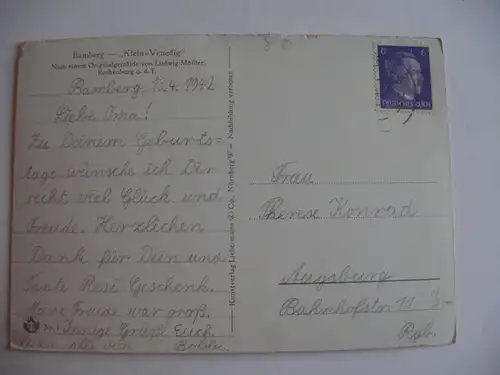 Bamberg — „Klein-Venedig"
Nach einem Originalgemälde von Ludwig Mößler,
Rothenburg o. d. T.
Bamberg 15.4. 1942
Liebe Oma!
Zu Deinem Geburts-
tage wünsche ich Dir
recht viel Glück und
Freude. Herzlichen
Dank für Dein und
Tante Resi Geschenk.
Meine Freude war groß.
Innige Grüße Euch
allen von
Kunstverlag Liebermann & Co., Nürnberg W — Nachbildung verboten
6 6
DEUTSCHES REICH
Frau
Therese Konrad
Augsburg
Bahnhofstr. 11